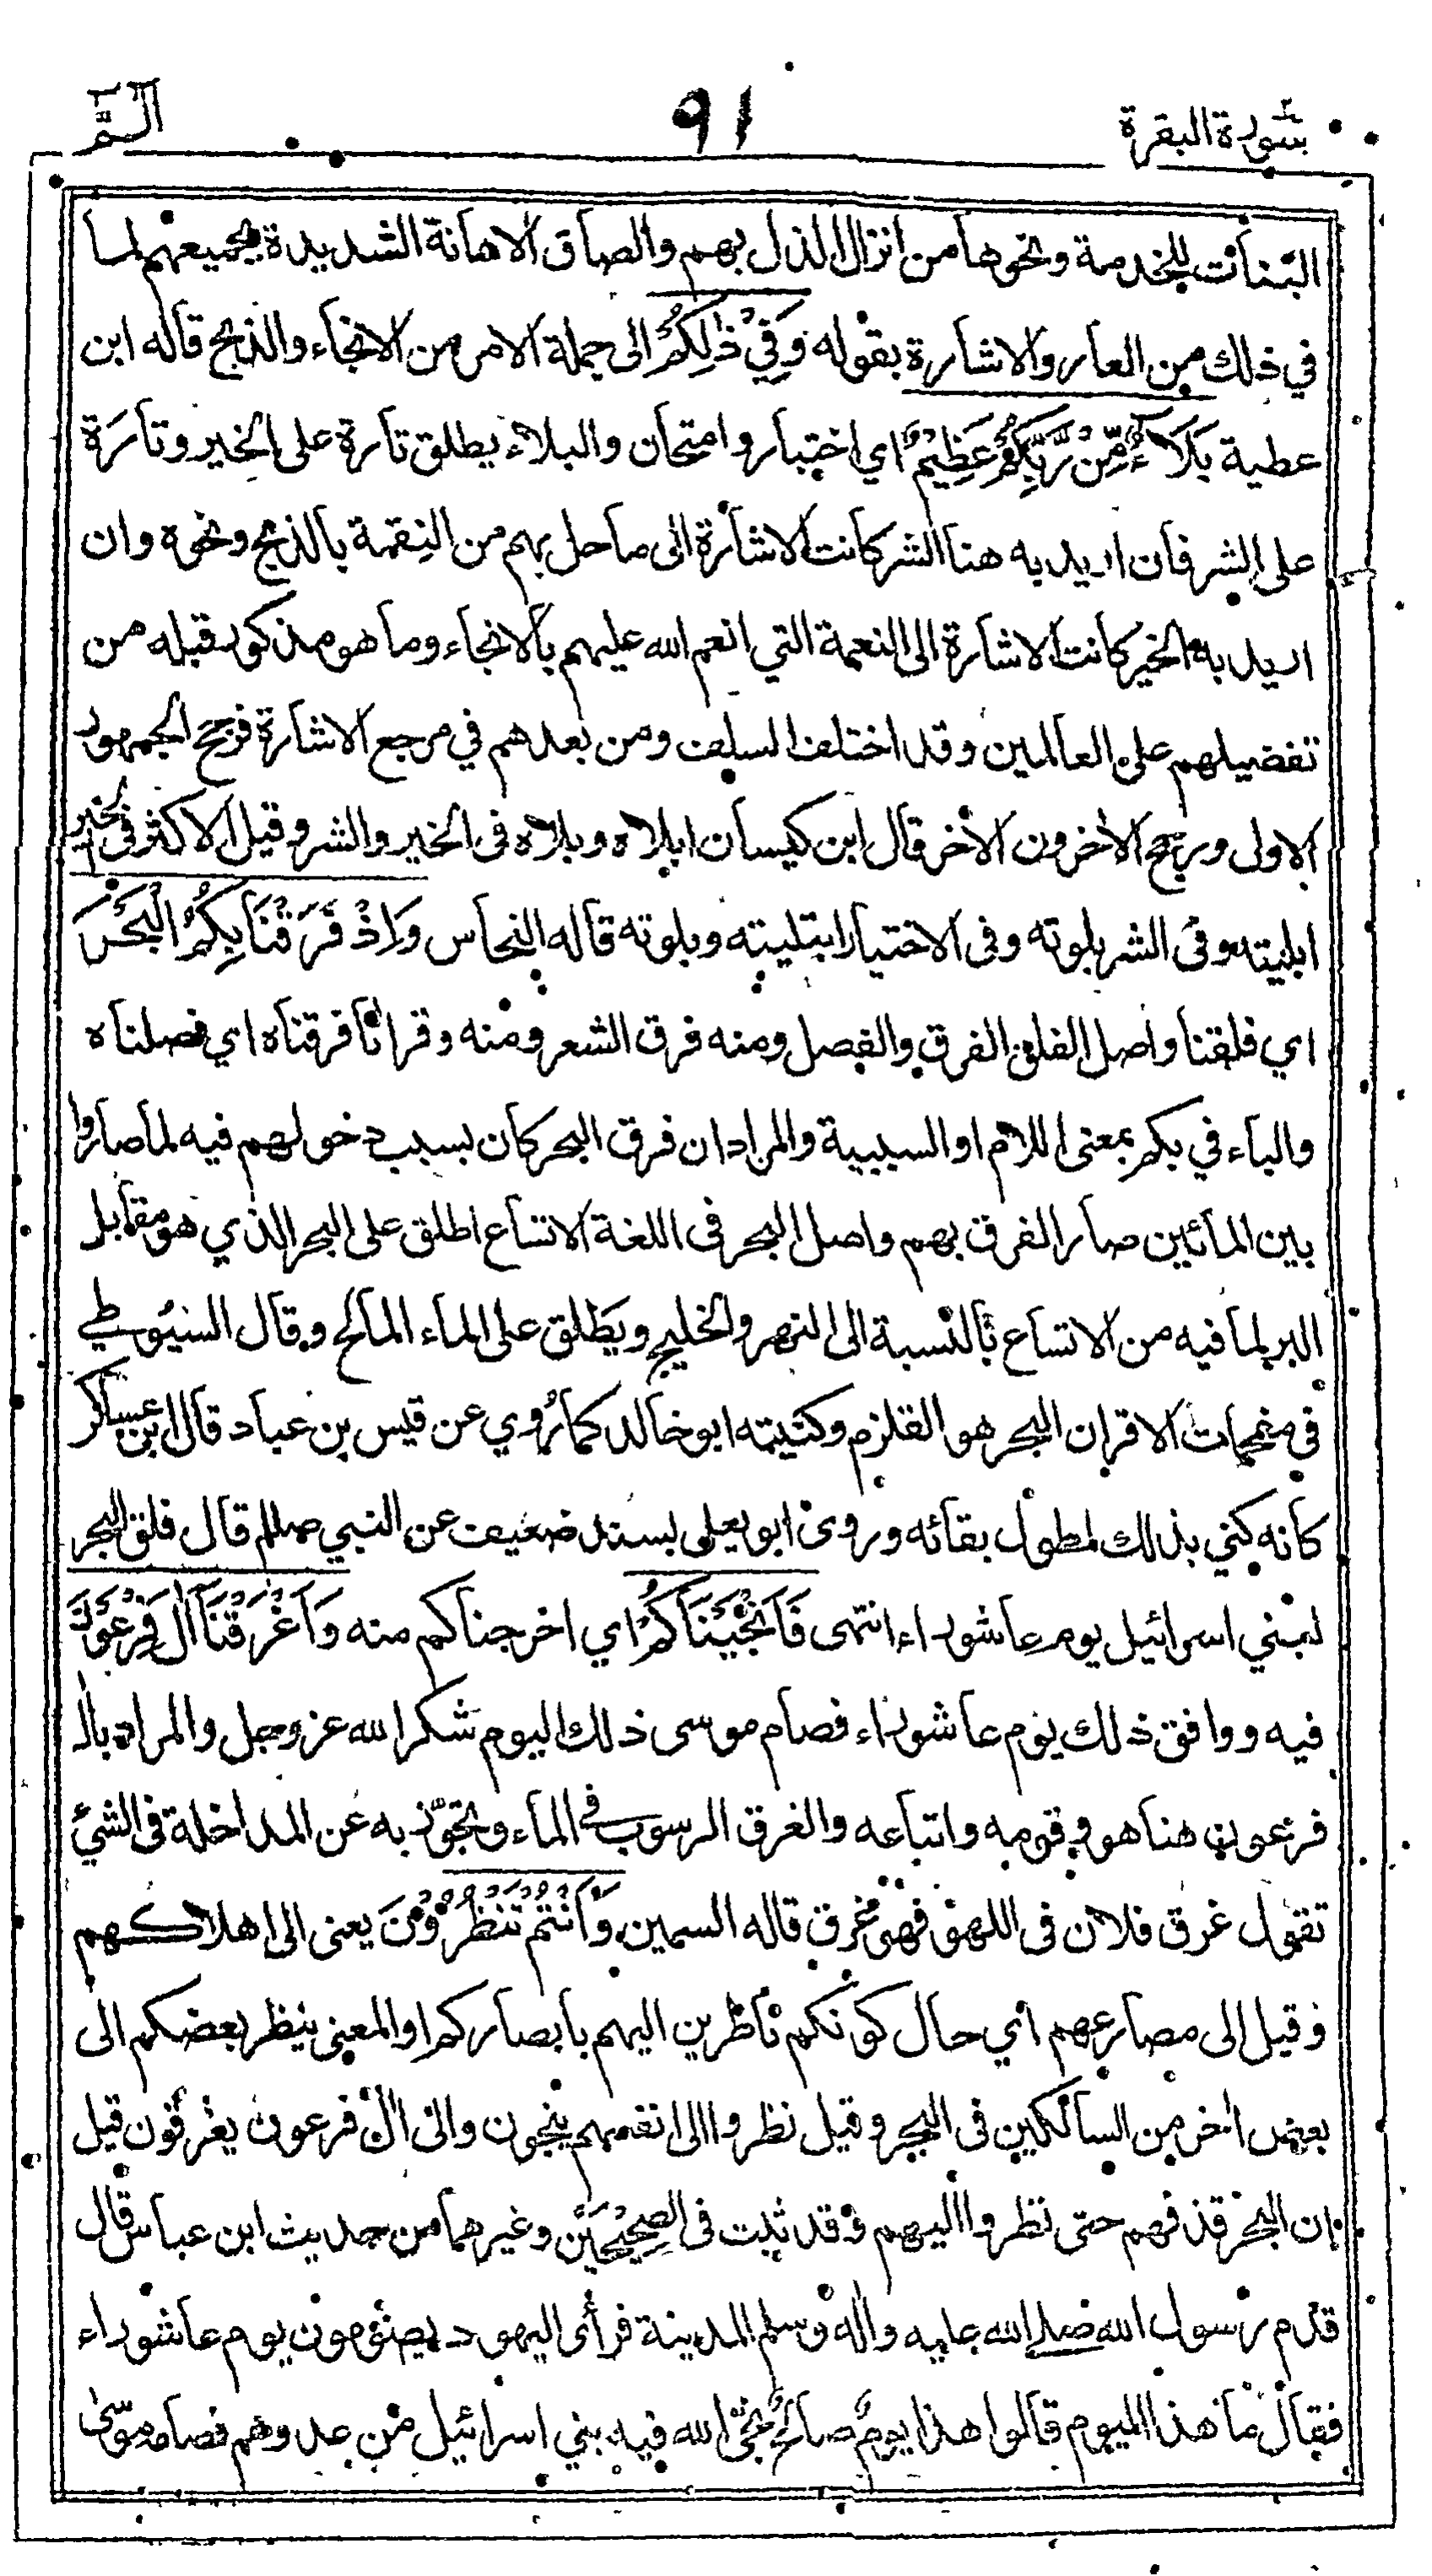 سورة البقرة
٩١
الٓمّٓ
البنات للخدمة ونحوها من انزال الذل بهم والصاق الاهانة الشديدة بجميعهم لما
في ذلك من العار والاشارة بقوله وَفِيْ ذٰلِكُمْ الى جملة الامر من الانجاء والذبح قاله ابن
عطية بَلَآءٌ مِّنْ رَّبِّكُمْ عَظِيْمٌ اي اختبار وامتحان والبلاء يطلق تارة على الخير وتارَة
على الشر فان اريد به هنا الشر كانت الاشارة الى ما حل بهم من النِقمة بالذبح ونحوه وان
اريد به الخير كانت الاشارة الى النعمة التي انعم الله عليهم بالانجاء وما هو مذكور قبله من
تفضيلهم على العالمين وقد اختلف السلف ومن بعدهم في مرجع الاشارة فرجح الجمهور
الاول ورجح الاخرون الاخر قال ابن كيسان ابلاه وبلاه فى الخير والشر وقيل الاكثر فى الخير
ابليته وفى الشر بلوته وفى الاختيار ابتليته وبلوته قاله النحاس وَاِذْ فَرَقْنَا بِكُمُ الْبَحْرَ
اي فلقنا واصل الفلق الفرق والفصل ومنه فرق الشعر ومنه وقرانا فرقناه اي فصلناه
والباء في بكم بمعنى اللام او السببية والمراد ان فرق البحر كان بسبب دخولهم فيه لما صاروا
بين المائين صار الفرق بهم واصل البحر فى اللغة الاتساع اطلق على البحر الذي هو مقابل
البر لما فيه من الاتساع بالنسبة الى النهر والخليج ويطلق على الماء المالح وقال السيوطي
في مفحمات الاقران البحر هو القلزم وكنيته ابو خالد كما رُوي عن قيس بن عباد قال ابن عساكر
كانه كني بذلك لطول بقائه وروى ابو يعلى بسند ضعيف عن النبي صللم قال فلق البحر
لبني اسرائيل يوم عاشوراء انتهى فَاَنْجَيْنَاكُمْ اي اخرجناكم منه وَاَغْرَقْنَا اٰلَ فِرْعَوْنَ
فيه ووافق ذلك يوم عاشوراء فصام موسى ذلك اليوم شكرا لله عز وجل والمراد بال
فرعون هنا هو وقومه واتباعه والغرق الرسوب فى الماء وتجوّز به عن المداخلة فى الشئ
تقول غرق فلان فى اللهو فهو غرق قاله السمين وَاَنْتُمْ تَنْظُرُوْنَ يعنى الى اهلاكهم
وقيل الى مصارعهم اي حال كونكم ناظرين اليهم بابصاركم او المعنى ينظر بعضكم الى
بعض اخر من السالكين فى البحر وقيل نظروا الى انفسهم ينجون والى اٰل فرعون يغرقون قيل
ان البحر قذفهم حتى نظروا اليهم وقد ثبت فى الصحِيْحَيْن وغيرهما من حديث ابن عباس قال
قدم رسول الله صلى الله عليه واٰله وسلم المدينة فرأى اليهود يصومون يوم عاشوراء
فقال ما هذا اليوم قالوا هذا يومٌ صالحٌ نجّى الله فيه بني اسرائيل من عدوهم فصامه موسٰى